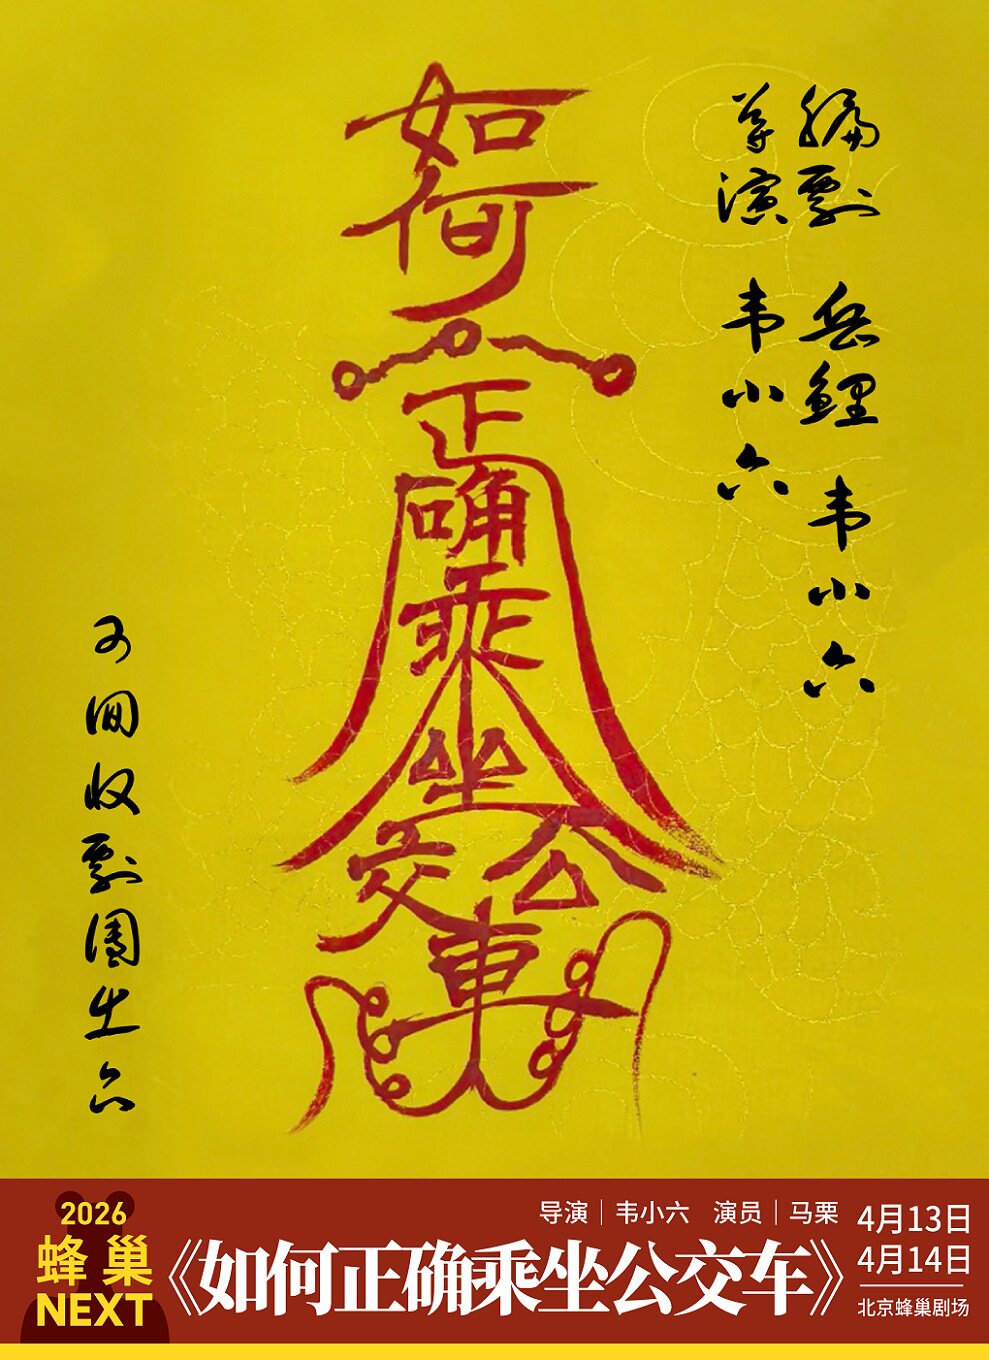 如何
正
确
乘
坐
公交
車
编剧 岳鲤 韦小六
导演 韦小六
2026
蜂巢
NEXT
导演|韦小六 演员|马栗
《如何正确乘坐公交车》
4月13日
4月14日
北京蜂巢剧场